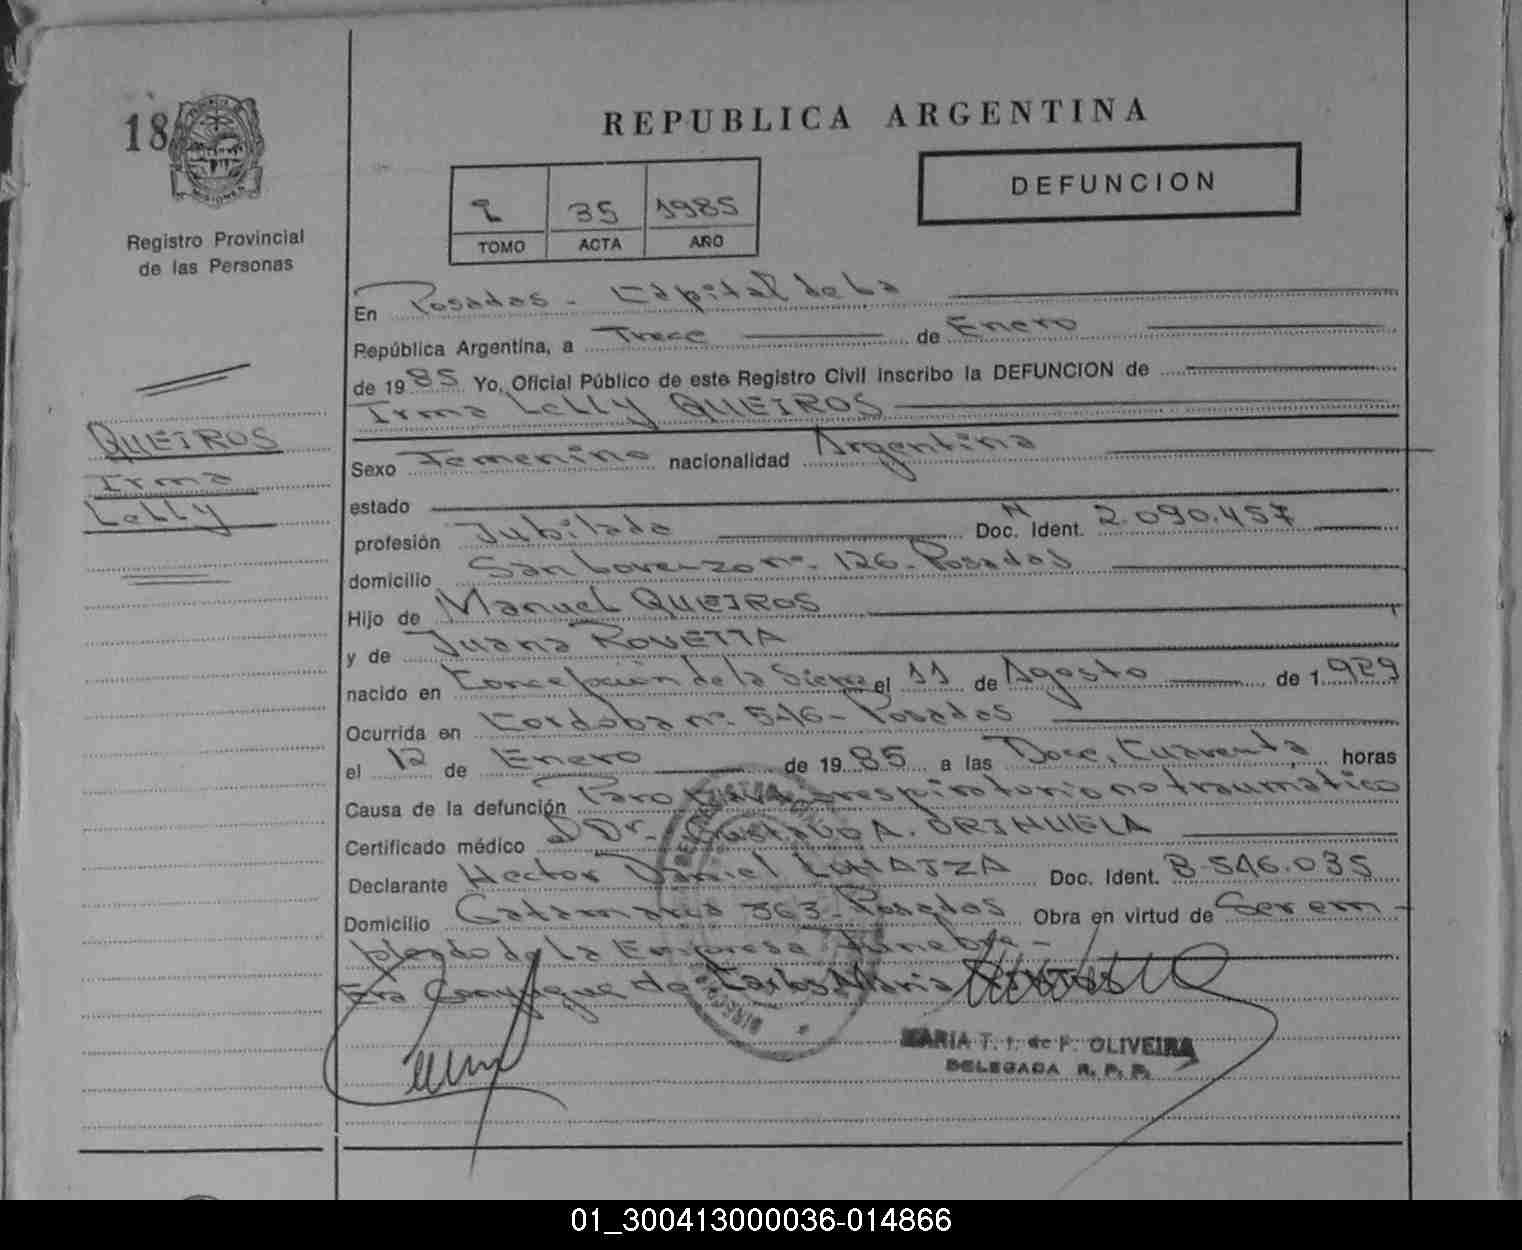 18
REPUBLICA ARGENTINA
DEFUNCION
35 1985
TOMO ACTA AÑO
Registro Provincial
de las Personas
QUEIROS
Irma
Lelly
En Posadas - Capital de La
República Argentina, a Trece de Enero
de 1985 Yo, Oficial Público de este Registro Civil inscribo la DEFUNCION de
Irma Lelly QUEIROS
Sexo Femenino nacionalidad Argentina
estado
profesión Jubilada Doc. Ident. 2.090.457
domicilio San Lorenzo nº 126 - Posadas
Hijo de Manuel QUEIROS
y de Juana ROVETTA
nacido en Concepción de la Sierra el 11 de Agosto de 1929
Ocurrida en Cordoba nº 546 - Posadas
el 12 de Enero de 1985 a las Doce, Cuarenta horas
Causa de la defunción Paro Cardiorespiratorio no traumático
Certificado médico Dr. Gustavo A. ORIHUELA
Declarante Hector Daniel Doc. Ident. 8-546.035
Domicilio Catamarca 363 - Posadas Obra en virtud de Ser em-
pleado de la Empresa Funebre -
Era Conyugue de Carlos Maria
MARIA T. de F. OLIVEIRA
DELEGADA R. P. P.
01_300413000036-014866